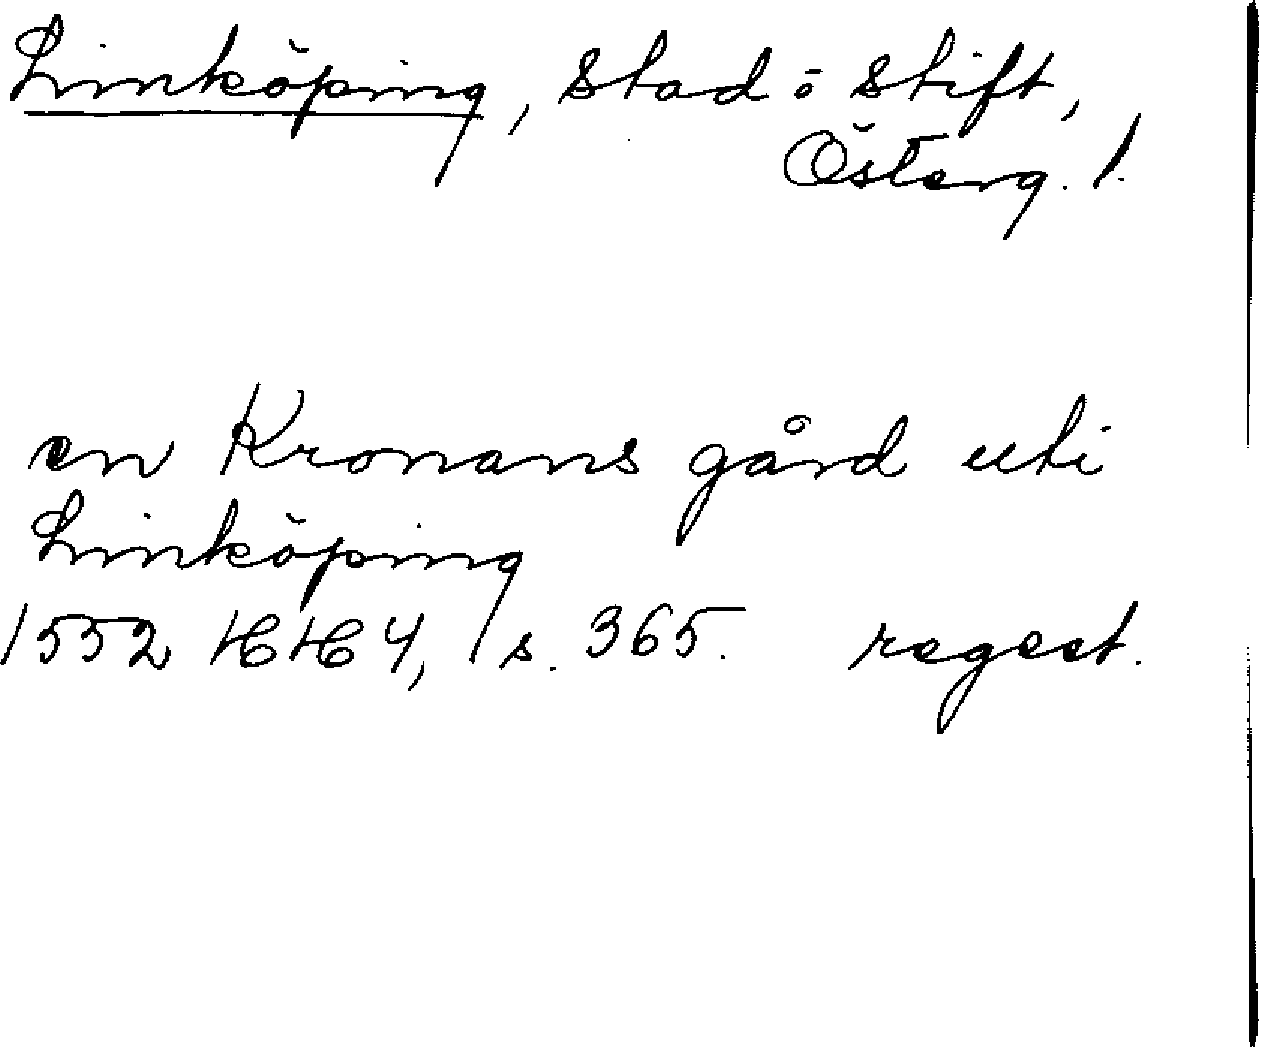 Linköping, stad o stift,
Österg. l.
en Kronans gård uti
Linköping
1552 HH 4, s. 365. regest.